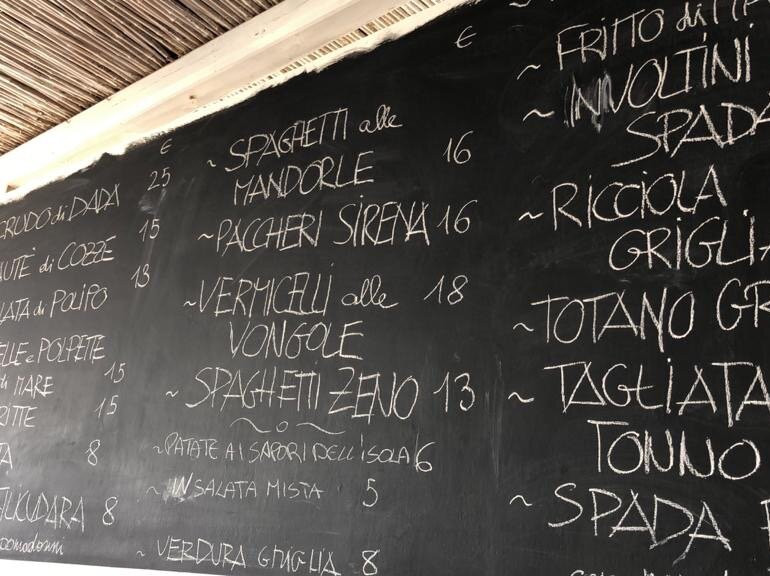 €
CRUDO di DADA 25
AUTÈ di COZZE 15
LATA di POLIPO 13
ELLE e POLPETTE
di MARE 15
RITTE 15
TA 8
ILICUDARA 8
pomodorini
€
~ SPAGHETTI alle
MANDORLE 16
~ PACCHERI SIRENA 16
~ VERMICELLI alle 18
VONGOLE
~ SPAGHETTI ZENO 13
~ o ~
~ PATATE AI SAPORI DELL'ISOLA 6
~ INSALATA MISTA 5
~ VERDURA GRIGLIA 8
~ FRITTO di
~ INVOLTINI
SPADA
~ RICCIOLA
GRIGLIA
~ TOTANO GR
~ TAGLIATA
TONNO
~ SPADA